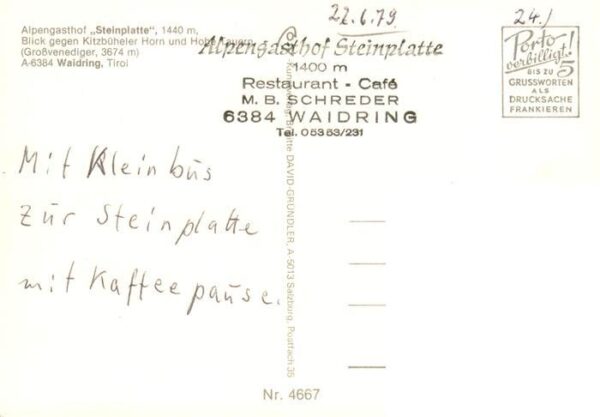 Alpengasthof „Steinplatte", 1440 m,
Blick gegen Kitzbüheler Horn und Hohe Tauern
(Großvenediger, 3674 m)
A-6384 Waidring, Tirol
22.6.79
24./
Alpengasthof Steinplatte
1400 m
Restaurant - Café
M. B. SCHREDER
6384 WAIDRING
Tel. 05353/231
Porto-
verbilligt!
BIS ZU 5
GRUSSWORTEN
ALS
DRUCKSACHE
FRANKIEREN
Mit Kleinbus
zur Steinplatte
mit Kaffeepause.
Brigitte DAVID-GRÜNDLER, A-5013 Salzburg, Postfach 35
Nr. 4667